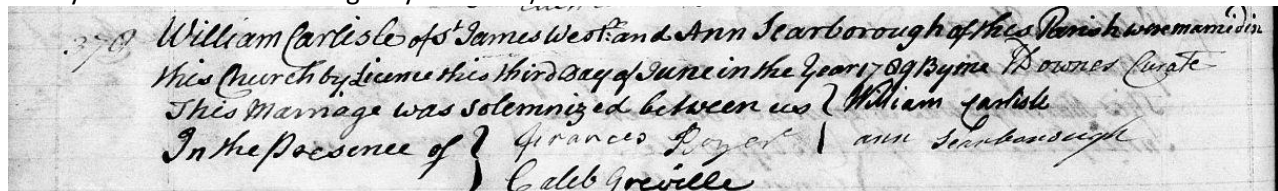 379 William Carlisle of St. James Westr. and Ann Scarborough of this Parish were married in
this Church by Licence this third Day of June in the Year 1789 By me Downes Curate
This Marriage was Solemnized between us { William Carlisle
In the Presence of { Frances Royer { ann Scarborough
Caleb Greville